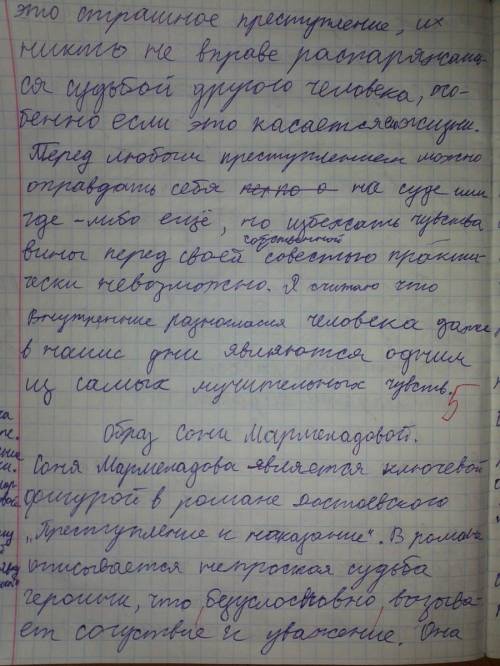 это страшное преступление, их
никто не вправе распоряжать-
ся судьбой другого человека, осо-
бенно если это касается его жизни.
Перед любым преступлением можно
оправдать себя на суде или
где-либо ещё, но избежать чувства
вины перед своей собственной совестью практи-
чески невозможно. Я считаю что
внутренние разногласия человека даже
в наши дни являются одним
из самых мучительных чувств.
5
Образ Сони Мармеладовой.
Соня Мармеладова является ключевой
фигурой в романе Достоевского
„Преступление и наказание". В романе
описывается непростая судьба
героини, что безусловно, вызыва-
ет сочуствие и уважение. Она